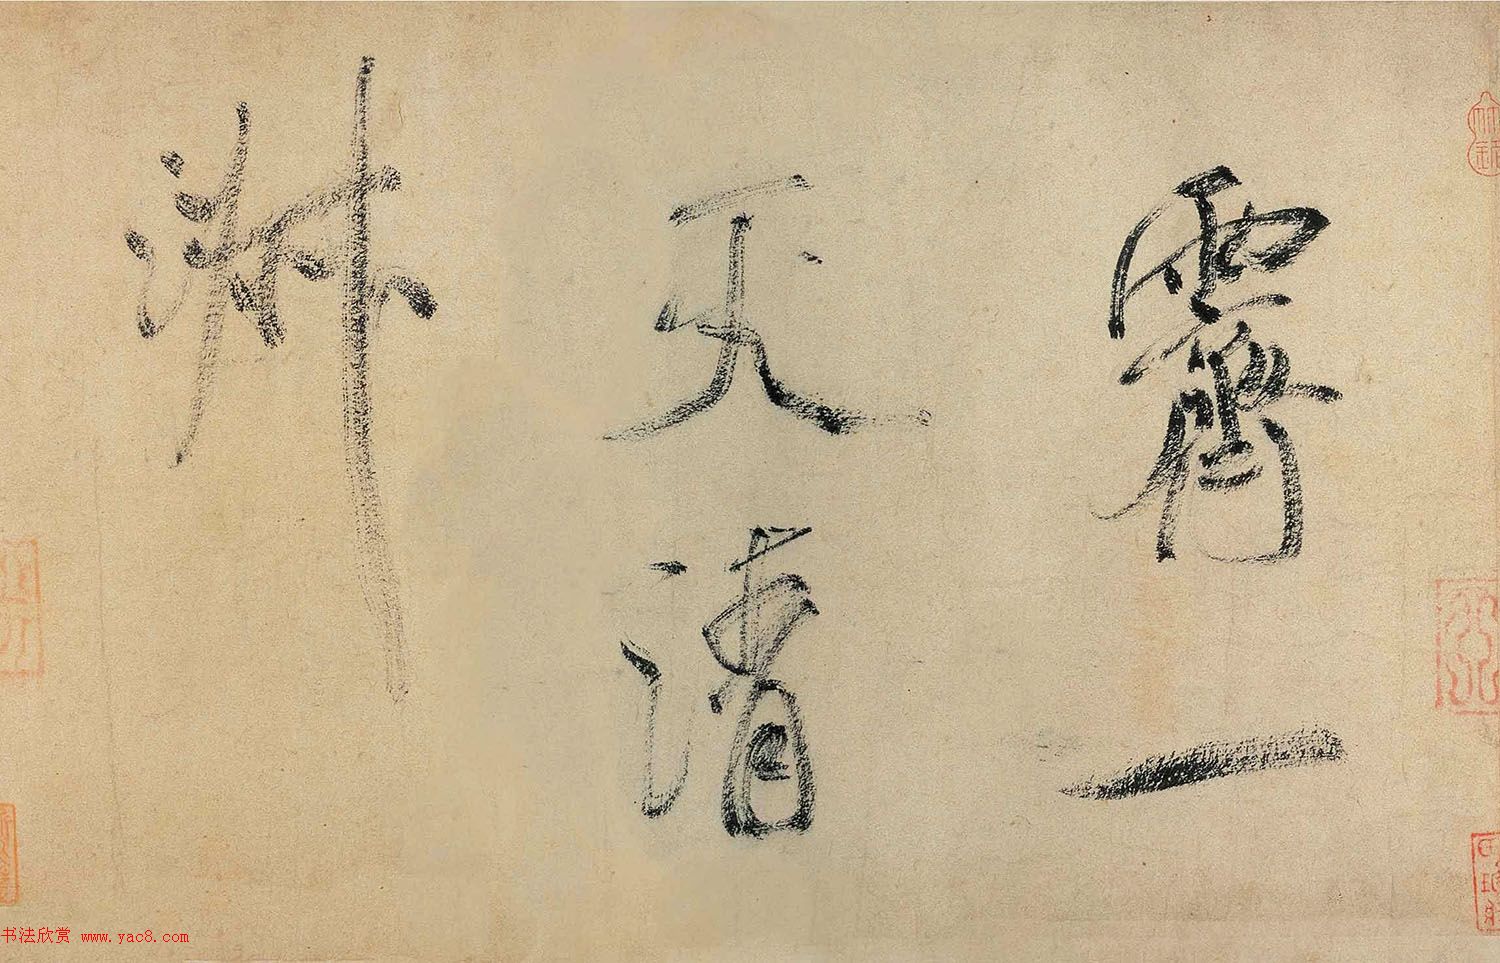 霽一
天清
淑
书法欣赏 www.yac8.com